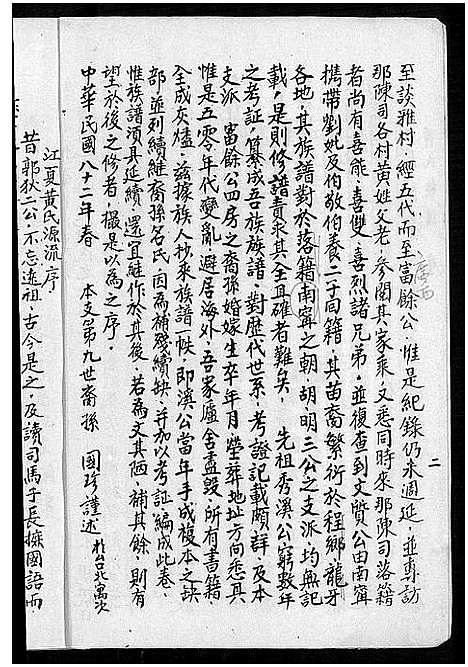 二
至談雅村，經五代而至富餘公，惟是紀錄仍未週延，並專訪
那陳司各村黃姓父老，參閱其家乘，又悉同時來那陳司落籍
者尚有喜能、喜雙、喜烈諸兄弟，並復查到文質公由南甯
攜帶劉妣及伯敬伯養二子回籍，其苗裔繁衍於程鄉龍牙
各地，其族譜對於落籍南甯之朝、胡、明三公之支派均無記
載，是則修譜責求其全且確者難矣。 先祖秀溪公，窮數年
之考証，纂成吾族族譜，對歷代世系，考證記載頗詳，及本
支派 富餘公四房之裔孫婚嫁生卒年月塋葬地址方向悉具，
惟是五零年代變亂避居海外，吾家廬舍盡毀，所有書籍，
全成灰燼，茲據族人抄來族譜一帙，即溪公當年手成複本之缺
部，並列續維裔孫名氏，因為補殘續缺，并加以考証，編成此卷，
惟族譜須具延續，還宜繼作於其後，若為文其陋，補其餘，則有
望於後之修者，撮是以為之序。
中華民國八十二年春 本支第九世裔孫 國珍謹述 於台北寓次
江夏黃氏源流序
昔郭狄二公，不忘遠祖，古今是之，及讀司馬子長㨿國語而